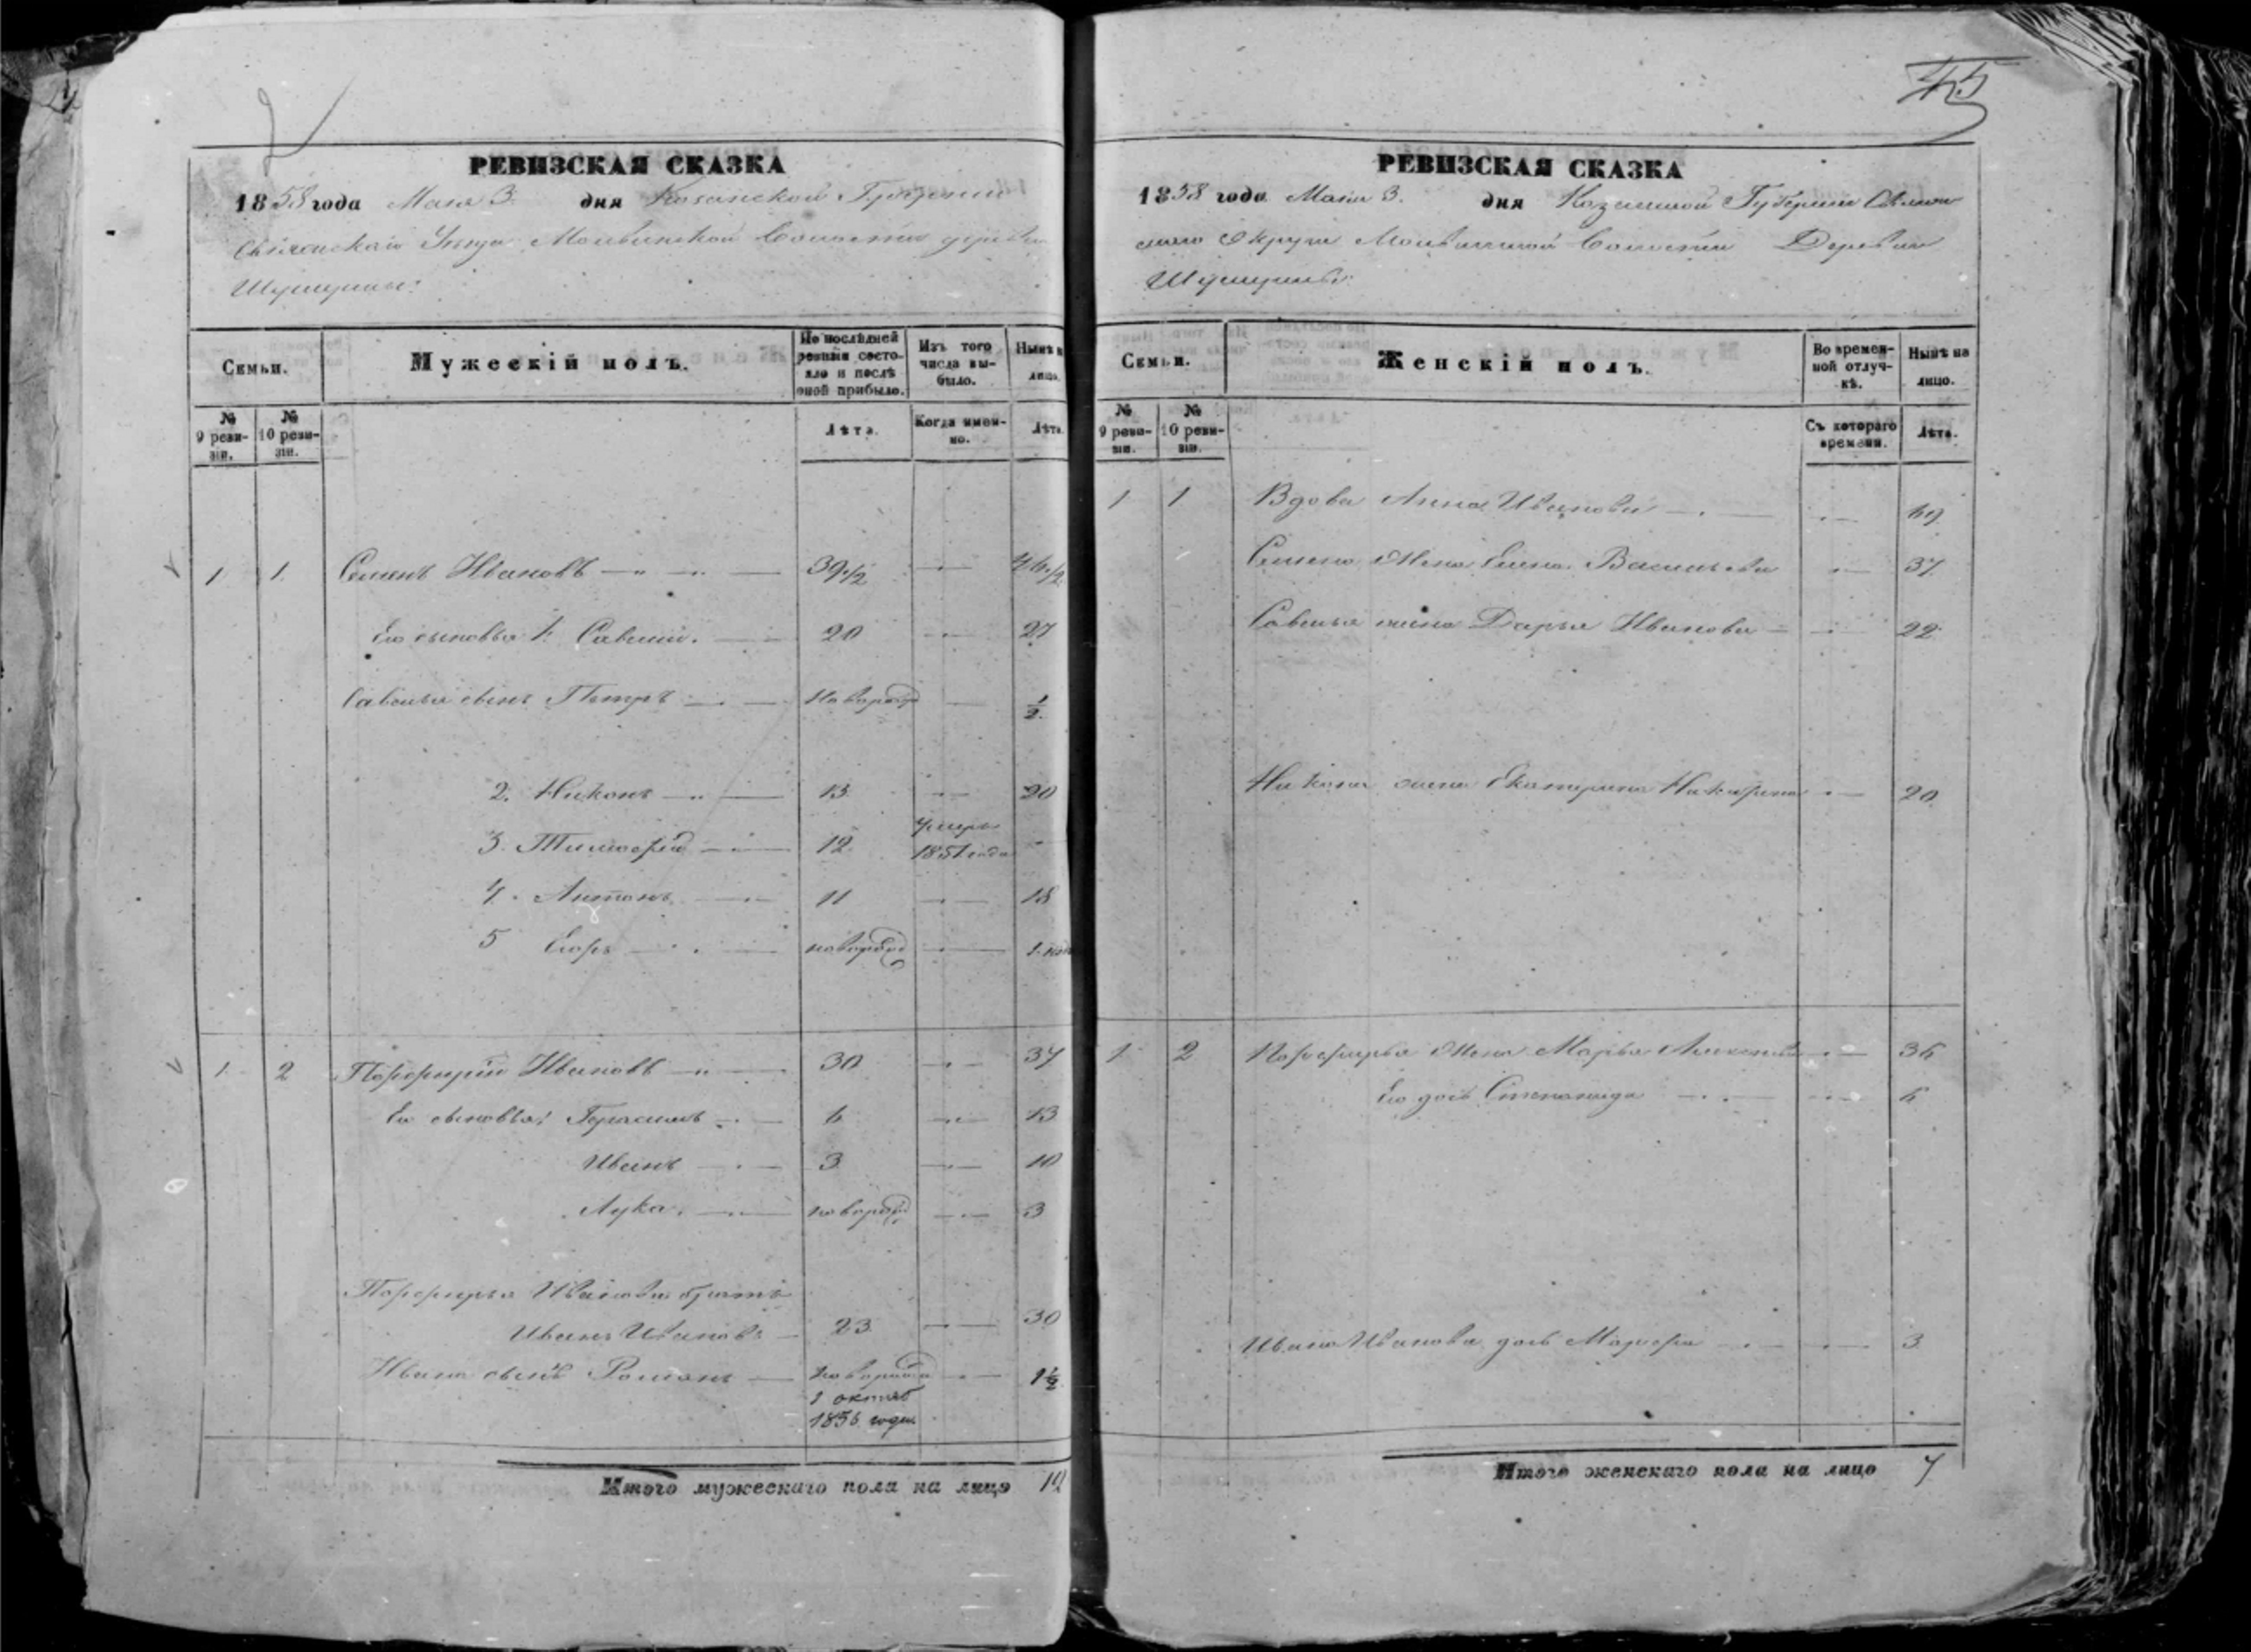 45
РЕВИЗСКАЯ СКАЗКА
1858 года Мая 3. дня Казанской Губернии
Свіяжскаго Уѣзда Моивинской Волости деревни
Шушурмы:
Семьи.
Мужескій полъ.
По послѣдней ревизіи состояло и послѣ оной прибыло.
Изъ того числа выбыло.
Нынѣ на лицо.
№ 9 ревизіи.
№ 10 ревизіи.
Лѣта.
Когда именно.
Лѣта.
1 1. Семенъ Ивановъ 39 1/2 46 1/2
Его сыновья 1. Савелій. 20 27
Савелья сынъ Петръ Новорожд 1/2.
2. Никонъ 13 20
3. Тимофей 12 умеръ 1851 года
4. Антонъ 11 18
5 Егоръ новорожд 1.
1. 2 Порфирій Ивановъ 30 37
Его сыновья: Герасимъ 6 13
Иванъ 3 10
Лука. новорожд 3
Порфирья Иванова братъ
Иванъ Ивановъ 23 30
Ивана сынъ Романъ новорожд 1 1/2
1 октяб
1856 года
Итого мужескаго пола на лицо 12
РЕВИЗСКАЯ СКАЗКА
1858 года Мая 3. дня Казанской Губерніи Свіяж
скаго Округа Волости Деревни
Семьи.
Женскій полъ.
Во временной отлучкѣ.
Нынѣ на лицо.
№ 9 ревизіи.
№ 10 ревизіи.
Съ котораго времени.
Лѣта.
1 1 Вдова Анна Иванова 69
Семена Жена Елена Васильева 37
Савелья жена Дарья Иванова 22
Никона жена Екатерина 20
1 2 Порфирья Жена Марья 36
Его дочь Степанида 6
Ивана Иванова дочь Марфа 3
Итого женскаго пола на лицо 7